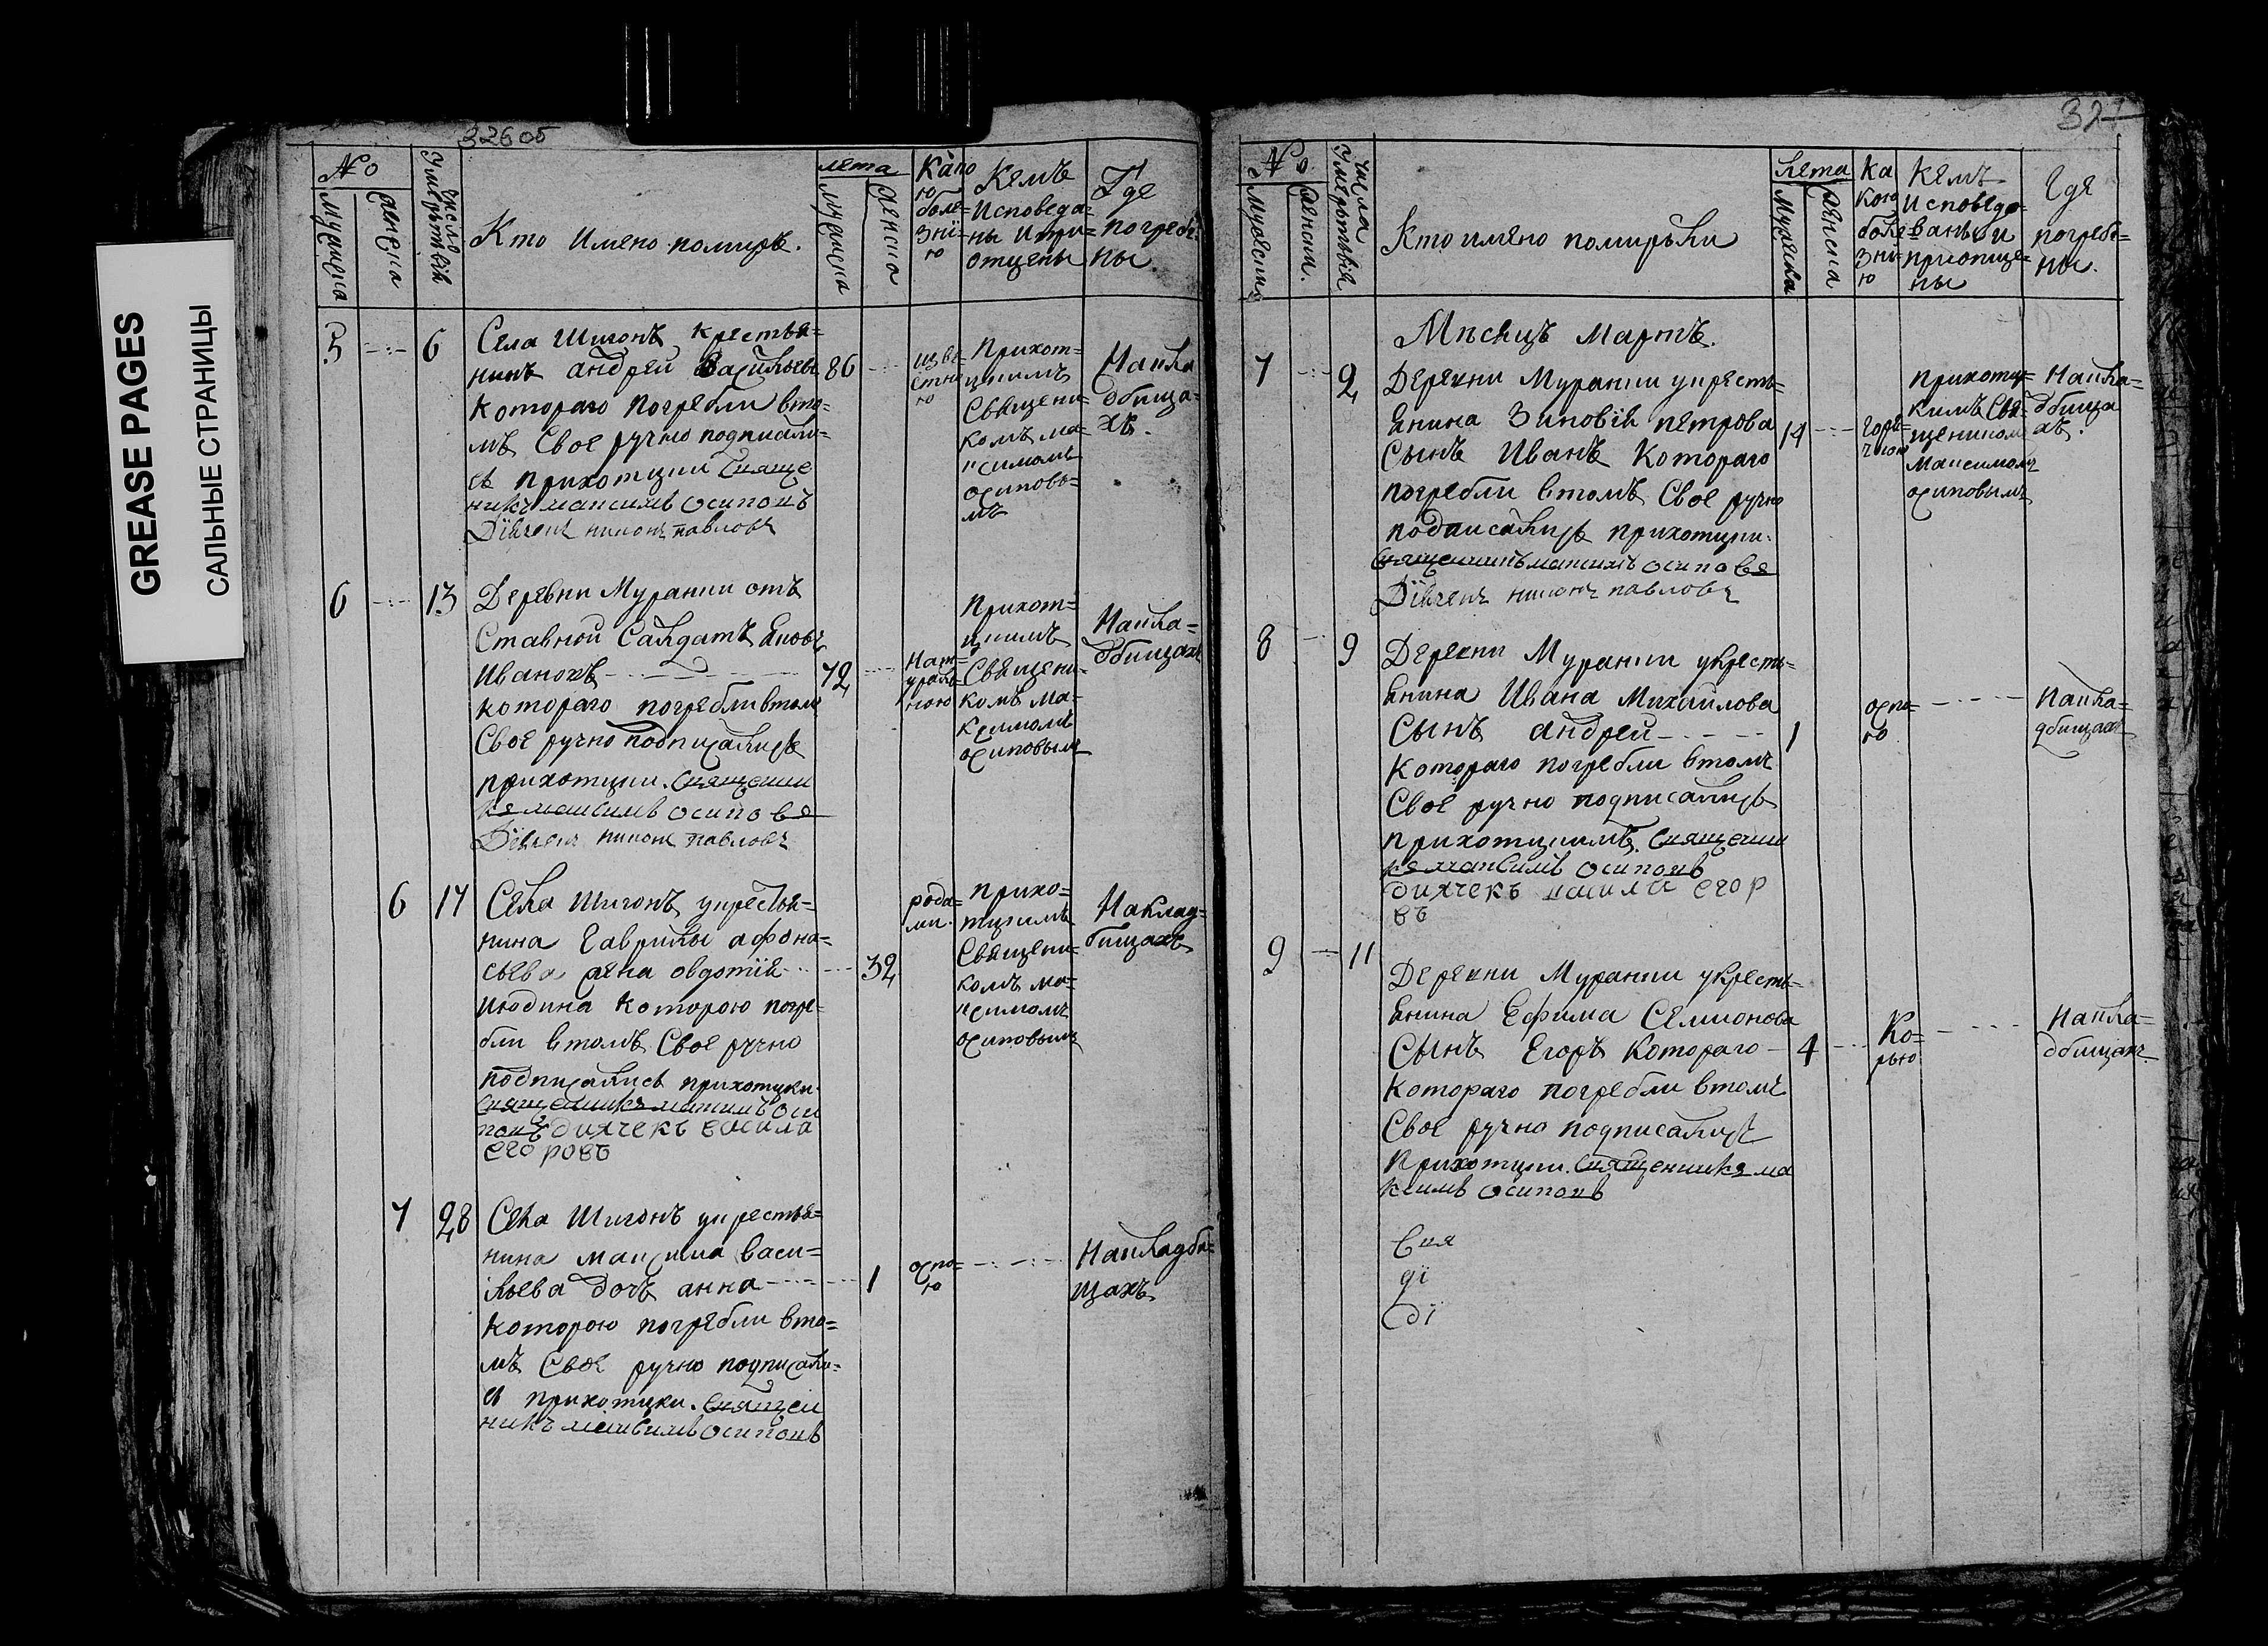 GREASE PAGES
САЛЬНЫЕ СТРАНИЦЫ
326 об
№
мужеска
женска
Числа умертвiй
Кто имено помиръ.
лета
мужеска
женска
Како
ю
боле=
знi=
ю
Кемъ
исповеда=
ны и при=
отщены
Где
погребе
ны.
5 6 Села Шигонъ крестья=
нинъ андреи Васильевъ 86
котораго погребли вто=
мъ Свое ручно подписали=
сь прихотцкии Свяще
никъ максимъ осиповъ
Дiячекъ никонъ павловъ
изве
стно
ю
Прихот=
цкимъ
Священи=
комъ ма=
ксимомъ
осиповы=
мъ
Накла
дбища=
хъ.
6 13 Деревни Муранки отъ
Ставной Салдатъ яковъ
Ивановъ 72
котораго погребли втомъ
Свое ручно подписались
прихотцкии. Священни
къ максимъ осиповъ
Дiячекъ никонъ павловъ
Нат=
ураль
ною
Прихот=
цкимъ
Священи=
комъ ма=
ксимомъ
осиповымъ
Накла=
дбищахъ
6 17 Села Шигонъ укрестья=
нина Гаврилы афона=
сьева жена овдотiя 32
июдина которою погре=
бли втомъ Свое ручно
подписались прихотцки.
Священникъ максимъ оси
повъ диячекъ василя
егоровъ
рода=
ми.
прихо=
тцкимъ
Священи=
комъ ма=
ксимомъ
осиповымъ
Наклад=
бищахъ
7 28 Села Шигонъ укрестья=
нина максима васи=
льева дочь анна 1
которою погребли вто=
мъ Свое ручно подписали=
сь прихотцки. Священ
никъ максимъ осиповъ
оспо=
ю
Накладби=
щахъ
327
№
Мужески
женски.
Числа умертвiя
Кто имяно помирьки
Лета
Мужеска
женска
Ка
кою
боле
зни=
ю
Кемъ
исповедо=
ваньи и
приотще=
ны
Где
погребе=
ны.
Мѣсяцъ Мартъ.
7 2 Деревни Муранки укресть=
янина Зиновiя петрова
Сынъ Иванъ Котораго 14
погребли втомъ Свое ручно
подписались прихотцки.
Священникъ максимъ осиповъ
Дiячекъ никонъ павловъ
Горя=
чкою
прихотц=
кимъ Свя=
щеникомъ
максимомъ
осиповымъ
Накла=
дбища
хъ.
8 9 Деревни Муранки укресть=
янина Ивана Михайлова
Сынъ андрей 1
котораго погребли втомъ
Свое ручно подписались
прихотцкимъ. Священни
къ максимъ осиповъ
диячекъ василя егор
въ
оспо=
ю
Накла=
дбищахъ
9 11
Деревни Муранки укресть=
янина Ефима Семионова
Сынъ Егоръ Котораго 4
котораго погребли втомъ
Свое ручно подписались
Прихотцки. Священникъ ма
ксимъ осиповъ
Ко=
рью
Накла=
дбищахъ.
Свя
дi
дi